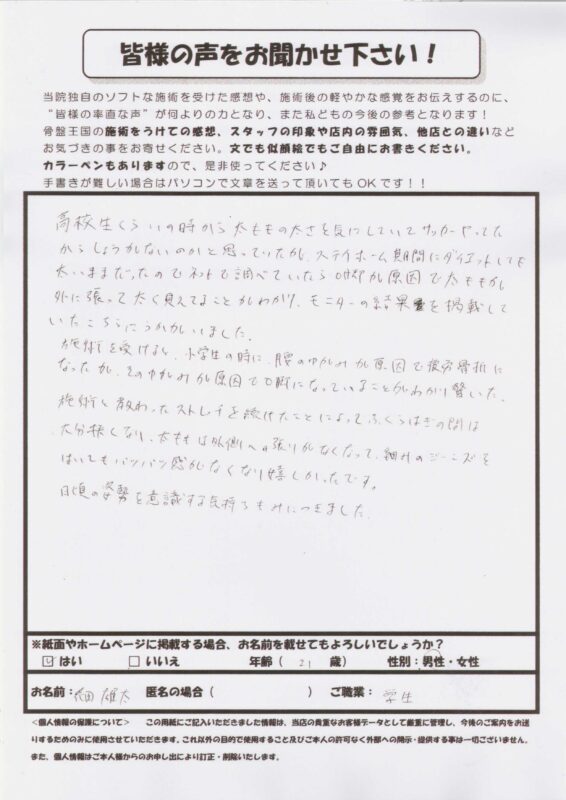 皆様の声をお聞かせ下さい！
当院独自のソフトな施術を受けた感想や、施術後の軽やかな感覚をお伝えするのに、
“皆様の率直な声”が何よりの力となり、また私どもの今後の参考となります！
骨盤王国の施術をうけての感想、スタッフの印象や店内の雰囲気、他店との違いなど
お気づきの事をお寄せください。文でも似顔絵でもご自由にお書きください。
カラーペンもありますので、是非使ってください♪
手書きが難しい場合はパソコンで文章を送って頂いてもOKです！！
高校生くらいの時から太ももの太さを気にしていてサッカーやってた
からしょうがないのかと思っていたが、ステイホーム期間にダイエットしても
太いままだったのでネットで調べていたらO脚が原因で太ももが
外に張って太く見えてることがわかり、モニターの結果を掲載して
いたこちらにうかがいました。
施術を受けると、小学生の時に、腰のゆがみが原因で疲労骨折に
なったが、そのゆがみが原因でO脚になっていることがわかり驚いた。
施術と教わったストレッチを続けたことによってふくらはぎの間は
大分狭くなり、太ももは外側への張りがなくなって、細みのジーンズを
はいてもパツパツ感がなくなり嬉しかったです。
日頃の姿勢を意識する気持ちもみにつきました。
※紙面やホームページに掲載する場合、お名前を載せてもよろしいでしょうか？
☑はい □いいえ 年齢（ 21 歳） 性別：男性・女性
お名前： 田 雄太 匿名の場合（ ） ご職業： 学生
＜個人情報の保護について＞ この用紙にご記入いただきました情報は、当店の貴重なお客様データとして厳重に管理し、今後のご案内をお送
りするためのみに使用させていただきます。これ以外の目的で使用すること及びご本人の許可なく外部への開示・提供する事は一切ございません。
また、個人情報はご本人様からのお申し出により訂正・削除いたします。